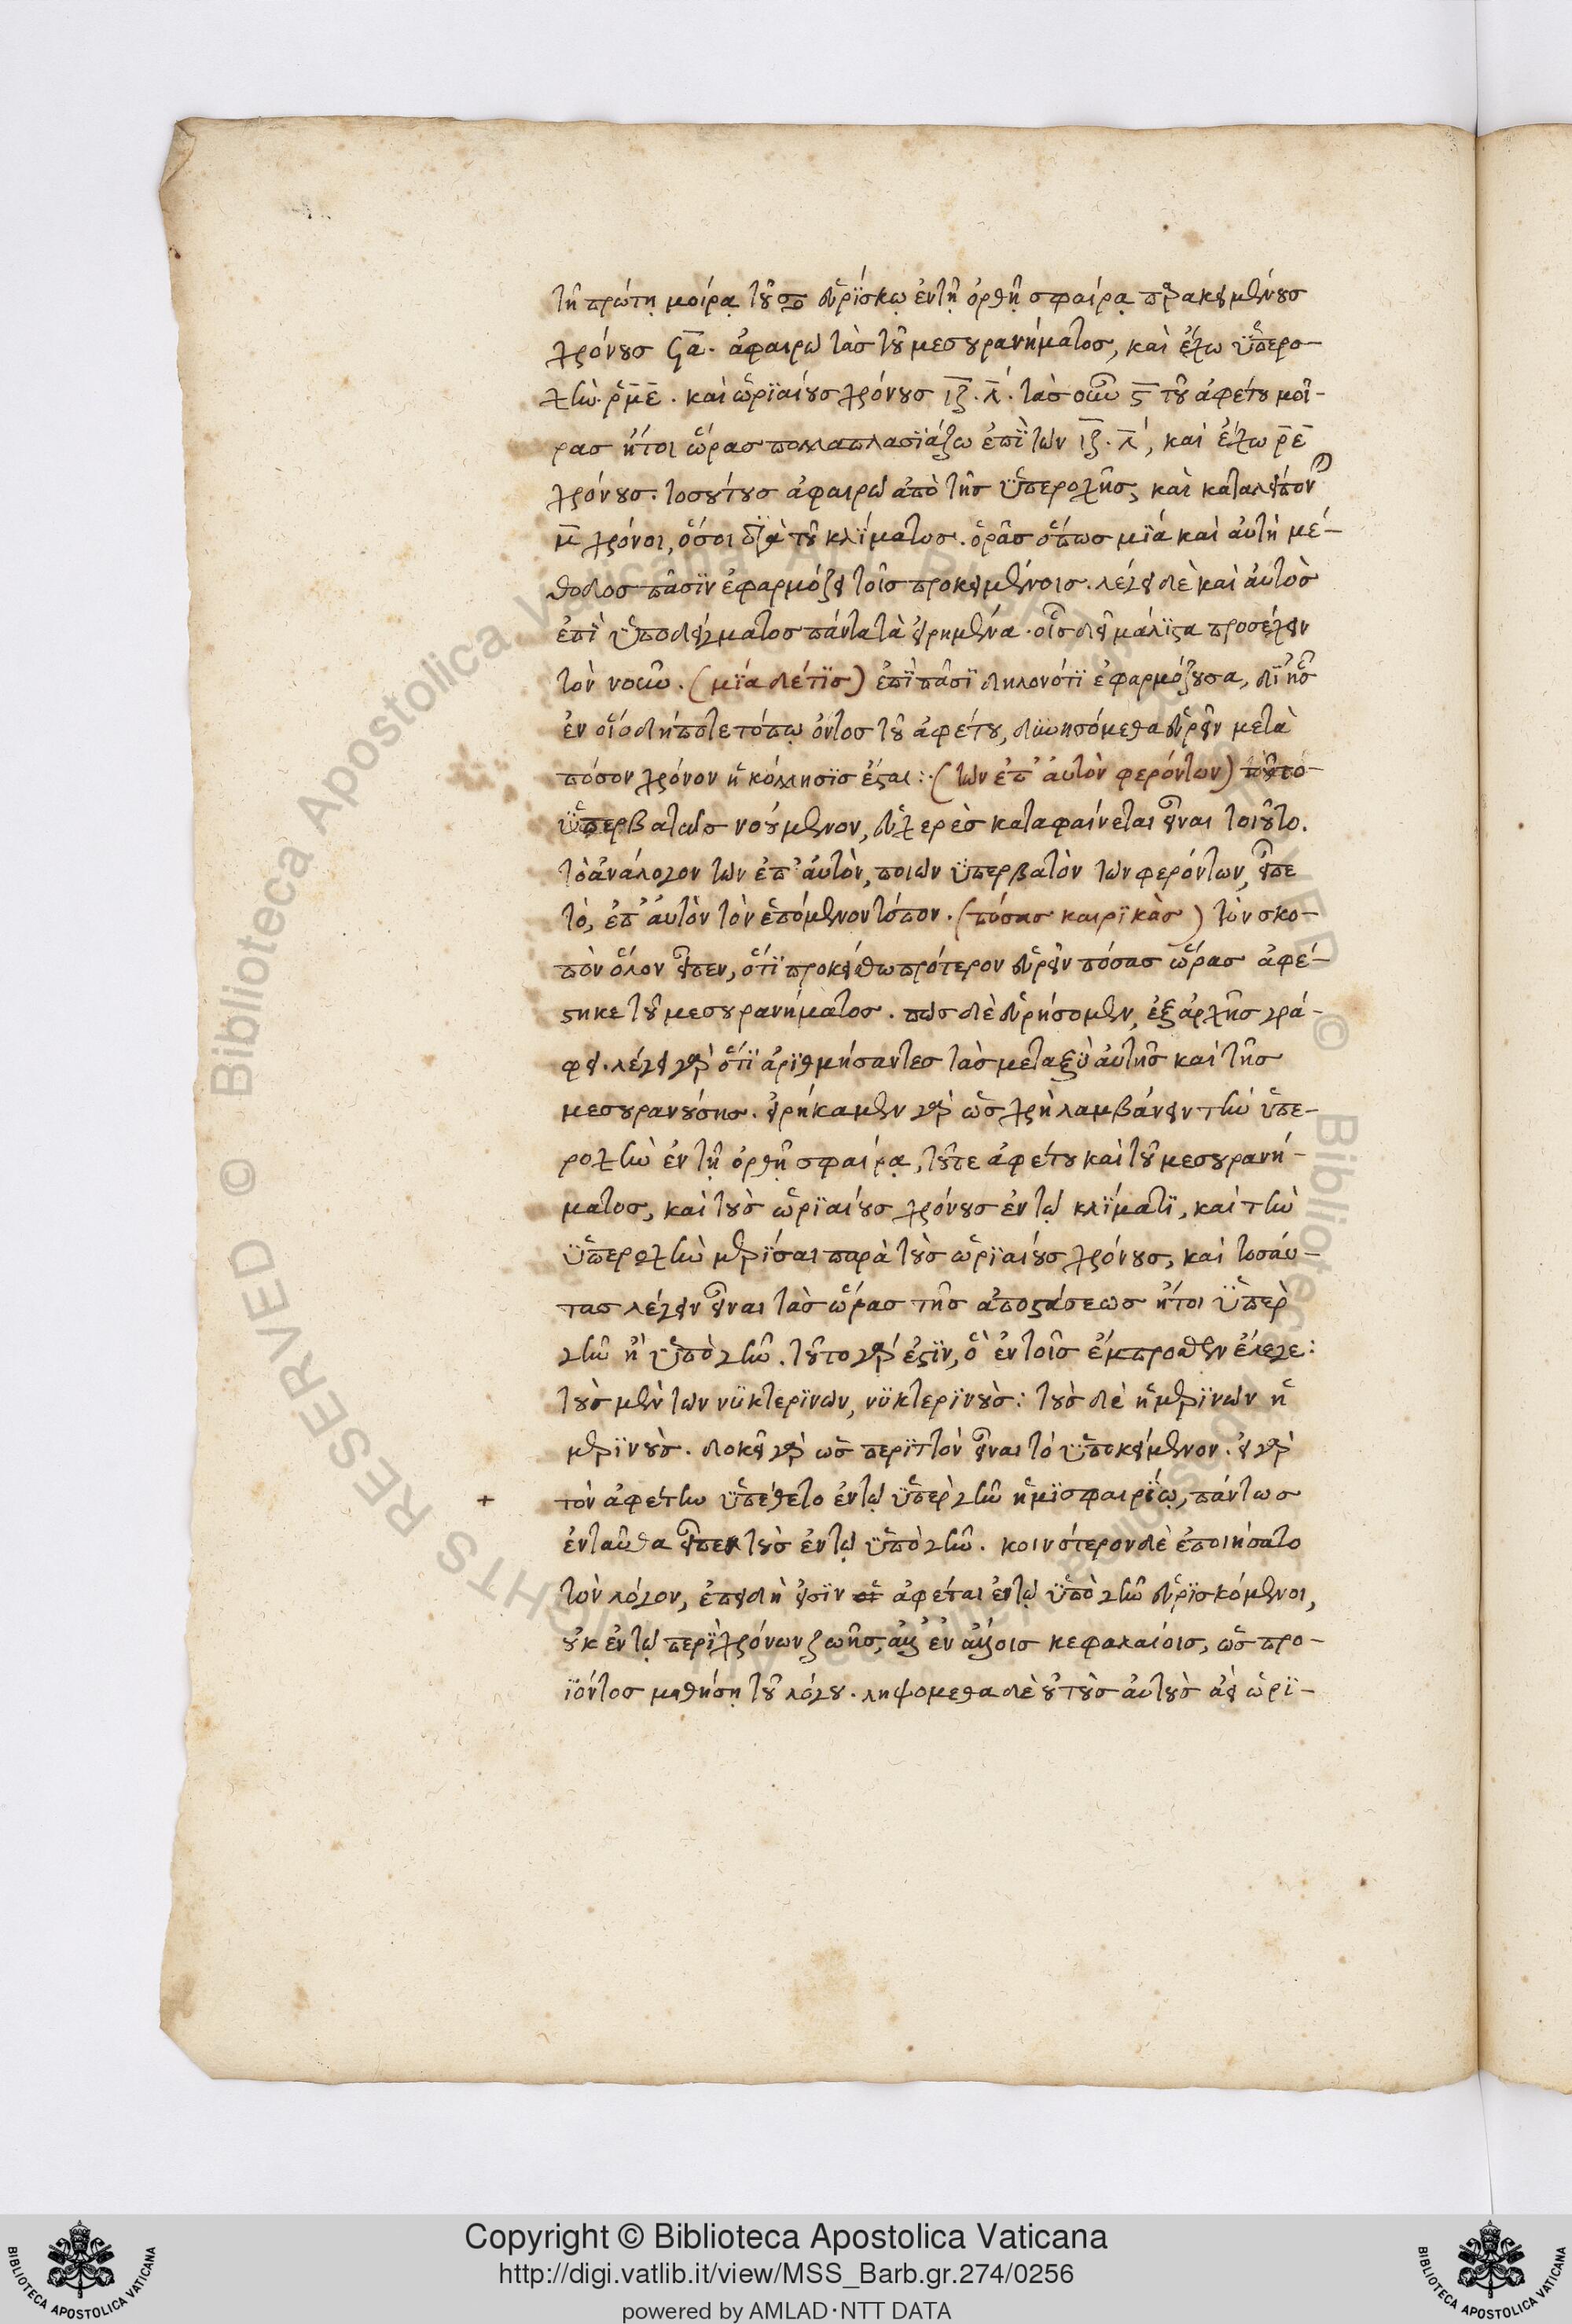 τῇ πρώτῃ μοίρᾳ τοῦ ♋ εὑρίσκω ἐν τῇ ὀρθῇ σφαίρᾳ παρακειμένους
χρόνους ϟα. ἀφαιρῶ τὰς τοῦ μεσουρανήματος, καὶ ἔχω ὑπερο-
χὴν ρμε. καὶ ὡριαίους χρόνους ιζ. λ. τὰς οὖν ς τοῦ ἀφέτου μοί-
ρας ἤτοι ὥρας πολλαπλασιάζω ἐπὶ τῶν ιζ. λ, καὶ ἔχω ρε
χρόνους. τοσούτους ἀφαιρῶ ἀπὸ τῆς ὑπεροχῆς, καὶ καταλείπονται
μ χρόνοι, ὅσοι διὰ τοῦ κλίματος. ὁρᾶς ὅπως μία καὶ αὐτὴ μέ-
θοδος πᾶσιν ἐφαρμόζει τοῖς προκειμένοις. λέγει δὲ καὶ αὐτὸς
ἐπὶ ὑποδείγματος πάντα τὰ εἰρημένα. οἷς δεῖ μάλιστα προσέχειν
τὸν νοῦν. (μία δέ τις) ἐπὶ πᾶσι δηλονότι ἐφαρμόζουσα, δι' ἧς
ἐν οἱῳδήποτε τόπῳ ὄντος τοῦ ἀφέτου, δυνησόμεθα εὑρεῖν μετὰ
πόσον χρόνον ἡ κόλλησις ἔσται: (τῶν ἐπ' αὐτὸν φερόντων)
ὑπερβατῶς νούμενον, εὐχερὲς καταφαίνεται εἶναι τοιοῦτο.
τὸ ἀνάλογον τῶν ἐπ' αὐτὸν, ποιῶν ὑπερβατὸν τῶν φερόντων, εἶπε
τό, ἐπ' αὐτὸν τὸν ἑπόμενον τόπον. (πόσας καιρικὰς) τὸν σκο-
πὸν ὅλον εἶπεν, ὅτι προκείσθω πρότερον εὑρεῖν πόσας ὥρας ἀφέ-
στηκε τοῦ μεσουρανήματος. πῶς δὲ εὑρήσομεν, ἐξ ἀρχῆς γρά-
φει. λέγει γὰρ ὅτι ἀριθμήσαντες τὰς μεταξὺ αὐτῆς καὶ τῆς
μεσουρανούσης. εἰρήκαμεν γὰρ ὡς χρὴ λαμβάνειν τὴν ὑπε-
ροχὴν ἐν τῇ ὀρθῇ σφαίρᾳ, τοῦ τε ἀφέτου καὶ τοῦ μεσουρανή-
ματος, καὶ τοὺς ὡριαίους χρόνους ἐν τῷ κλίματι, καὶ τὴν
ὑπεροχὴν μερίσαι παρὰ τοὺς ὡριαίους χρόνους, καὶ τοσαύ-
τας λέγειν εἶναι τὰς ὥρας τῆς ἀποστάσεως ἤτοι ὑπὲρ
γῆν ἢ ὑπὸ γῆν. τοῦτο γάρ ἐστιν, ὃ ἐν τοῖς ἔμπροσθεν ἔλεγε:
τοὺς μὲν τῶν νυκτερινῶν, νυκτερινοὺς: τοὺς δὲ ἡμερινῶν ἡ
μερινοὺς. δοκεῖ γὰρ ὡς περιττὸν εἶναι τὸ ὑποκείμενον. εἰ γὰρ
+ τὸν ἀφέτην ὑπέθετο ἐν τῷ ὑπὲρ γῆν ἡμισφαιρίῳ, πάντως
ἐνταῦθα εἶπεν τοὺς ἐν τῷ ὑπὸ γῆν. κοινότερον δὲ ἐποιήσατο
τὸν λόγον, ἐπειδὴ εἰσὶν οἱ ἀφέται ἐν τῷ ὑπὸ γῆν εὑρισκόμενοι,
οὐκ ἐν τῷ περὶ χρόνων ζωῆς, ἀλλ' ἐν ἄλλοις κεφαλαίοις, ὡς προ-
ϊόντος μαθήσῃ τοῦ λόγου. ληψόμεθα δὲ οὐ τοὺς αὐτοὺς ἀεὶ ὡρι-
Copyright © Biblioteca Apostolica Vaticana
http://digi.vatlib.it/view/MSS_Barb.gr.274/0256
powered by AMLAD·NTT DATA